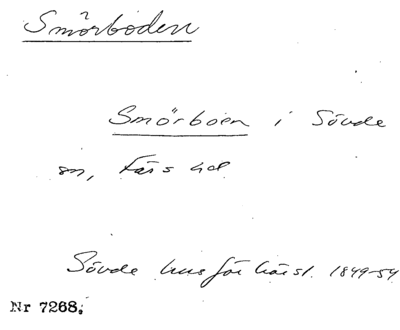 Smörboden
Smörboen i Sövde
sn, Färs hd
Sövde husförhörsl. 1849-54
Nr 7268.